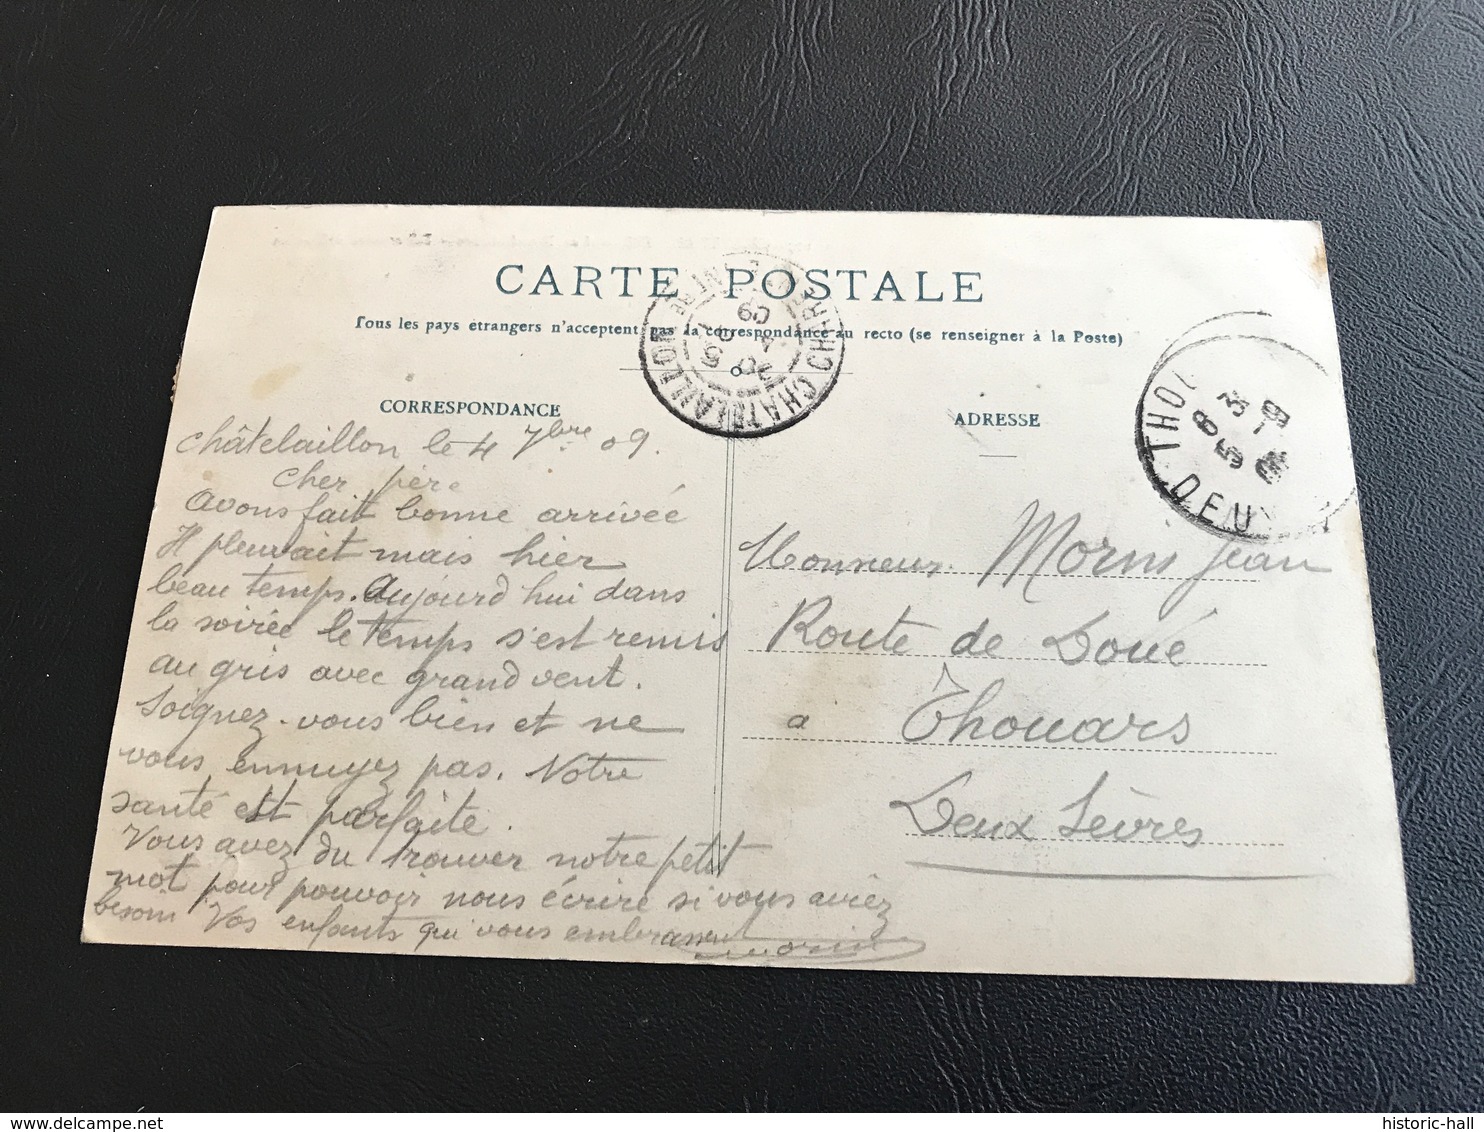 CARTE POSTALE
Tous les pays étrangers n'acceptent pas la correspondance au recto (se renseigner à la Poste)
CORRESPONDANCE
ADRESSE
CHATELAILLON
THOU
DEUX
châtelaillon le 4 7bre 09.
cher père
avons fait bonne arrivée
Il pleuvait mais hier
beau temps. Aujourd hui dans
la soirée le temps s'est remis
au gris avec grand vent.
Soignez-vous bien et ne
vous ennuyez pas. Notre
santé est parfaite.
Vous avez du trouver notre petit
mot pour pouvoir nous écrire si vous aviez
besoin Vos enfants qui vous embrassent
Morin
Monsieur Morin Jean
Route de Doué
a Thouars
Deux Sèvres
historic-hall